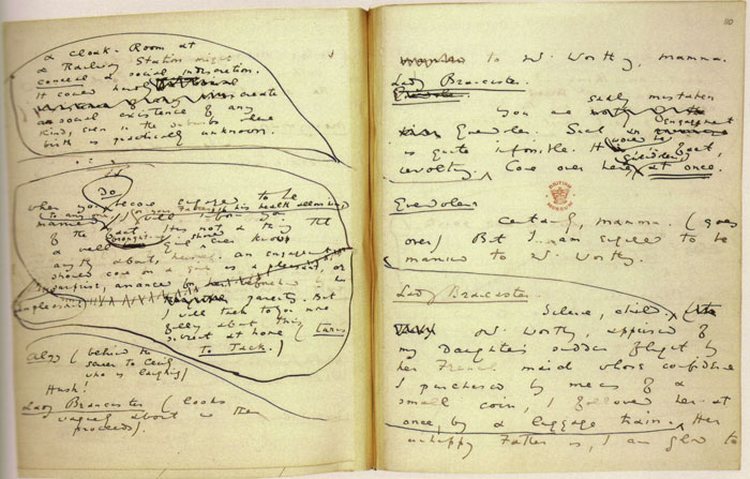 a cloak-Room at
a Railway Station might
conceal a social indiscretion.
It could hardly
create
a social existence of any
kind, even in the suburbs where
birth is practically unknown.
It
Do
when you become engaged to be
married to any one, I or your Father, if his health allows him,
will inform you
of the fact. It is not a thing that
a well brought up girl should ever know
anything about, herself. An engagement
should come on a girl as a pleasant, or
surprise,
unpleasant
parents. But
I will talk to you more
fully about this
at home (turns
to Jack.)
Algy (behind the
to Cecily
who is laughing)
Hush!
Lady Brancaster (looks
vaguely about &
proceeds).
80
to Mr Worthy, mamma.
Lady Brancaster.
Gwendolen.
You are sadly mistaken
Gwendolen. Such an engagement
is quite impossible. It would be
revolting. Come over here at once.
BRITISH
MUSEUM
Gwendolen
Certainly, mamma. (goes
over) But I am engaged to be
married to Mr Worthy.
Lady Brancaster
Silence, child. (
Mr Worthy, apprised of
my Daughter's sudden flight by
her French maid whose confidence
I purchased by means of a
small coin, I followed her at
once, by a luggage train. Her
unhappy Father is, I am glad to